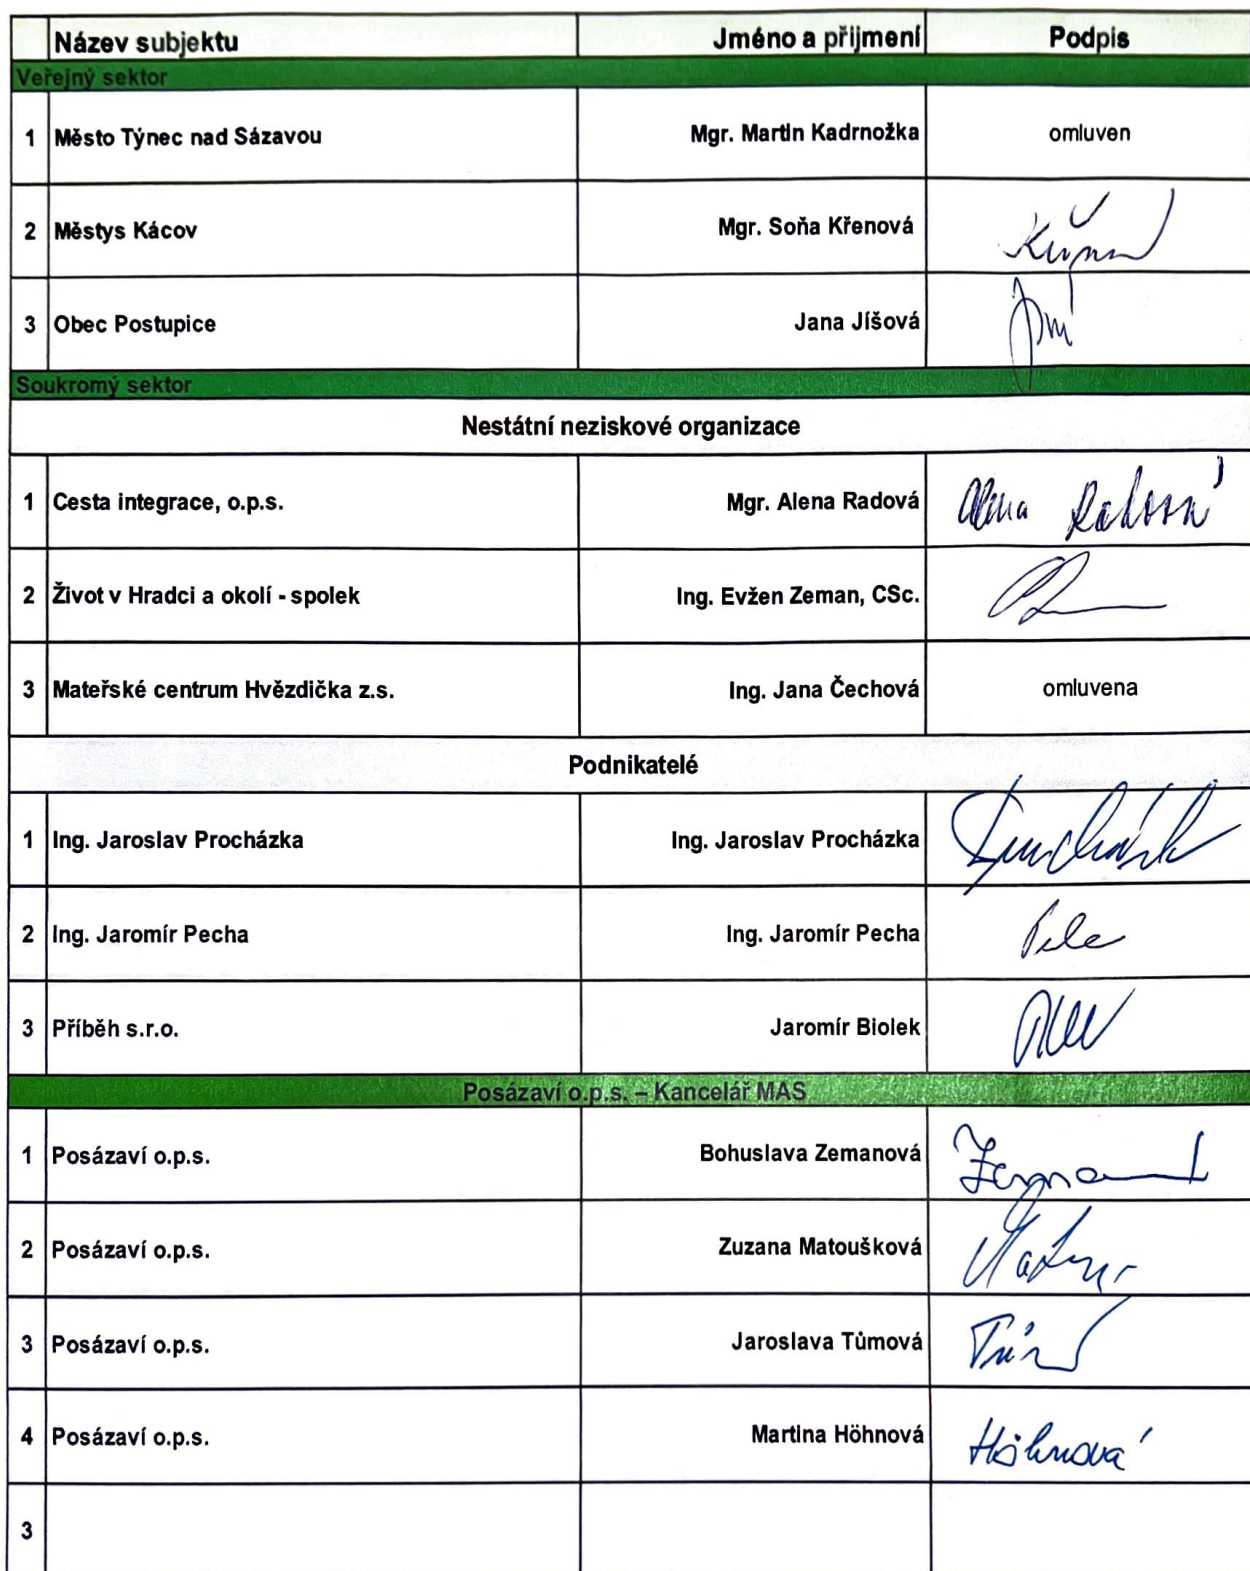 Název subjektu Jméno a přijmení Podpis
Veřejný sektor
1 Město Týnec nad Sázavou Mgr. Martin Kadrnožka omluven
2 Městys Kácov Mgr. Soňa Křenová
3 Obec Postupice Jana Jíšová
Soukromý sektor
Nestátní neziskové organizace
1 Cesta integrace, o.p.s. Mgr. Alena Radová Alena Radová
2 Život v Hradci a okolí - spolek Ing. Evžen Zeman, CSc.
3 Mateřské centrum Hvězdička z.s. Ing. Jana Čechová omluvena
Podnikatelé
1 Ing. Jaroslav Procházka Ing. Jaroslav Procházka
2 Ing. Jaromír Pecha Ing. Jaromír Pecha
3 Příběh s.r.o. Jaromír Biolek
Posázaví o.p.s. – Kancelář MAS
1 Posázaví o.p.s. Bohuslava Zemanová
2 Posázaví o.p.s. Zuzana Matoušková
3 Posázaví o.p.s. Jaroslava Tůmová
4 Posázaví o.p.s. Martina Höhnová Höhnová
3